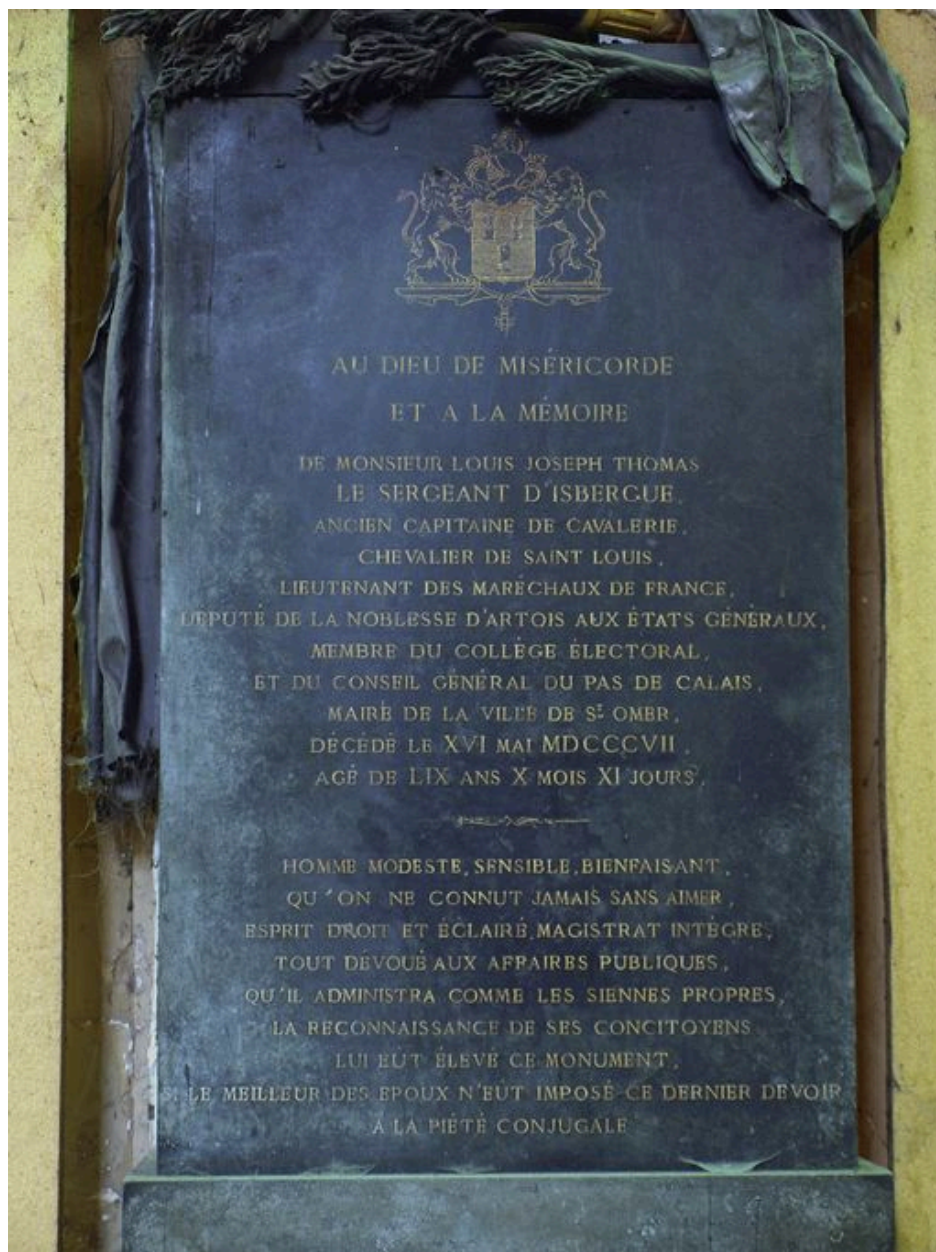 AU DIEU DE MISÉRICORDE
ET A LA MÉMOIRE
DE MONSIEUR LOUIS JOSEPH THOMAS
LE SERGEANT D'ISBERGUE
ANCIEN CAPITAINE DE CAVALERIE,
CHEVALIER DE SAINT LOUIS,
LIEUTENANT DES MARÉCHAUX DE FRANCE,
DÉPUTÉ DE LA NOBLESSE D'ARTOIS AUX ÉTATS GÉNÉRAUX,
MEMBRE DU COLLÈGE ÉLECTORAL,
ET DU CONSEIL GÉNÉRAL DU PAS DE CALAIS,
MAIRE DE LA VILLE DE St OMER,
DÉCÉDÉ LE XVI MAI MDCCCVII,
AGÉ DE LIX ANS X MOIS XI JOURS.
HOMME MODESTE, SENSIBLE, BIENFAISANT,
QU'ON NE CONNUT JAMAIS SANS AIMER,
ESPRIT DROIT ET ÉCLAIRÉ, MAGISTRAT INTÈGRE,
TOUT DÉVOUÉ AUX AFFAIRES PUBLIQUES,
QU'IL ADMINISTRA COMME LES SIENNES PROPRES,
LA RECONNAISSANCE DE SES CONCITOYENS
LUI EUT ÉLEVÉ CE MONUMENT,
SI LE MEILLEUR DES EPOUX N'EUT IMPOSÉ CE DERNIER DEVOIR
A LA PIÉTÉ CONJUGALE